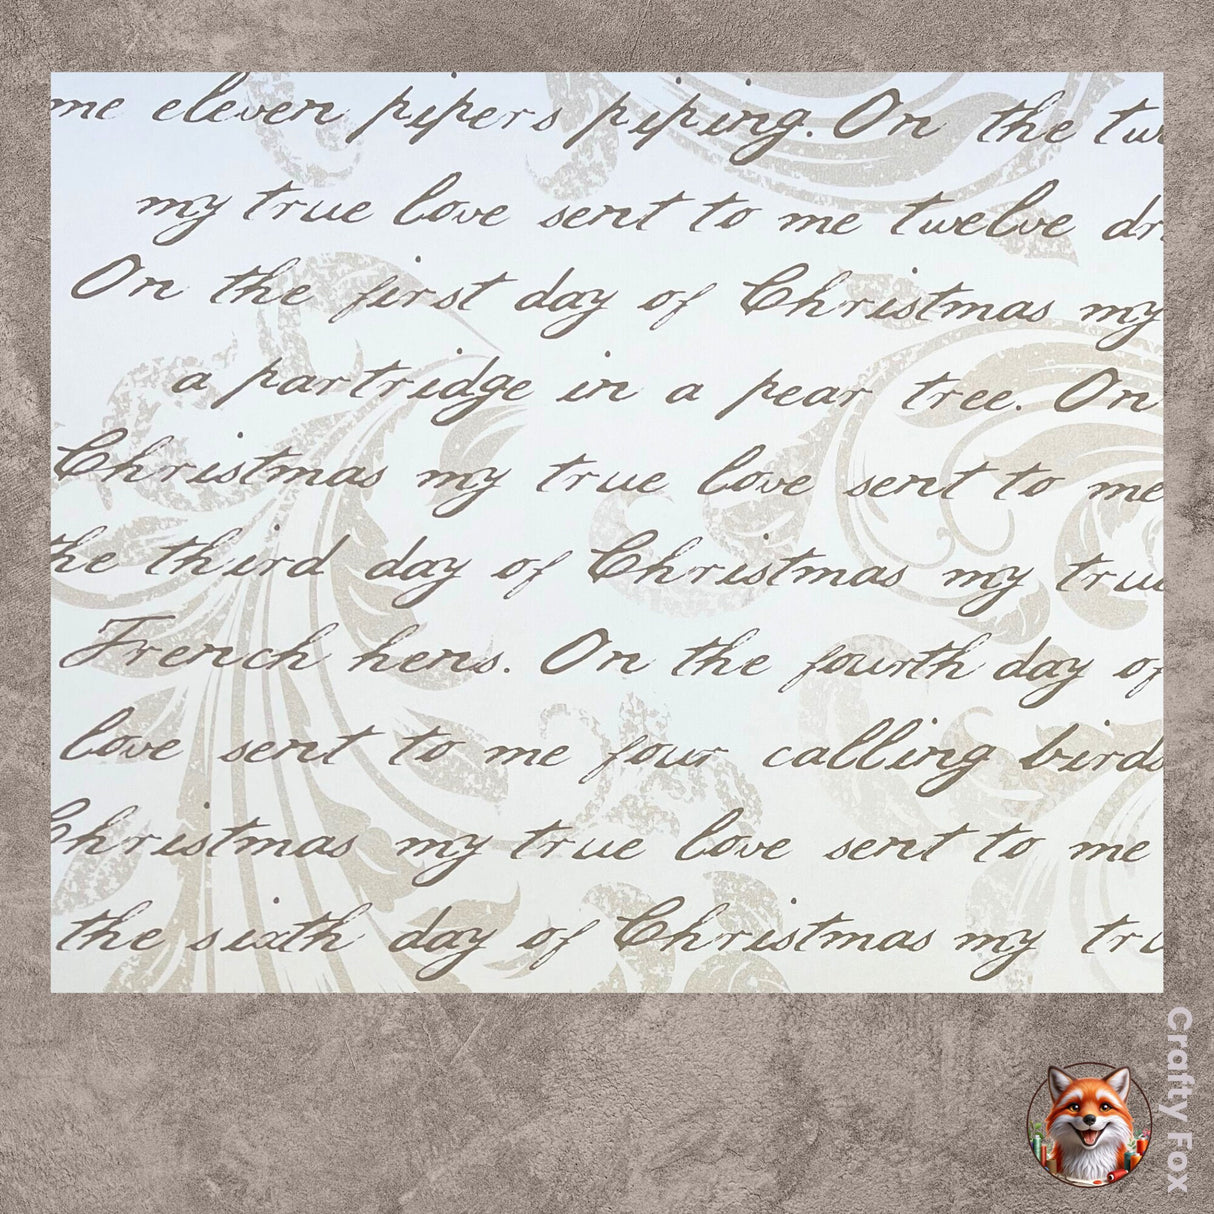 me eleven pipers piping. On the tw
my true love sent to me twelve dr
On the first day of Christmas my
a partridge in a pear tree. On
Christmas my true love sent to me
he third day of Christmas my true
French hens. On the fourth day of
love sent to me four calling birds
Christmas my true love sent to me
the sixth day of Christmas my tru
Crafty Fox